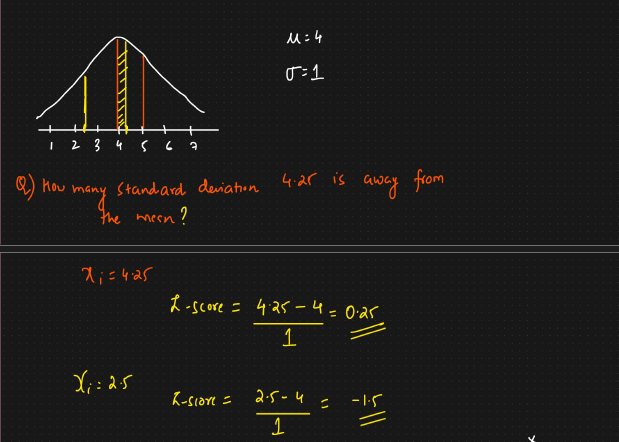 μ = 4
σ = 1
1 2 3 4 5 6 7
Q) How many standard deviation 4.25 is away from
the mean?
xi = 4.25
Z-score = 4.25 - 4 = 0.25
1
Xi = 2.5
Z-score = 2.5 - 4 = -1.5
1
x